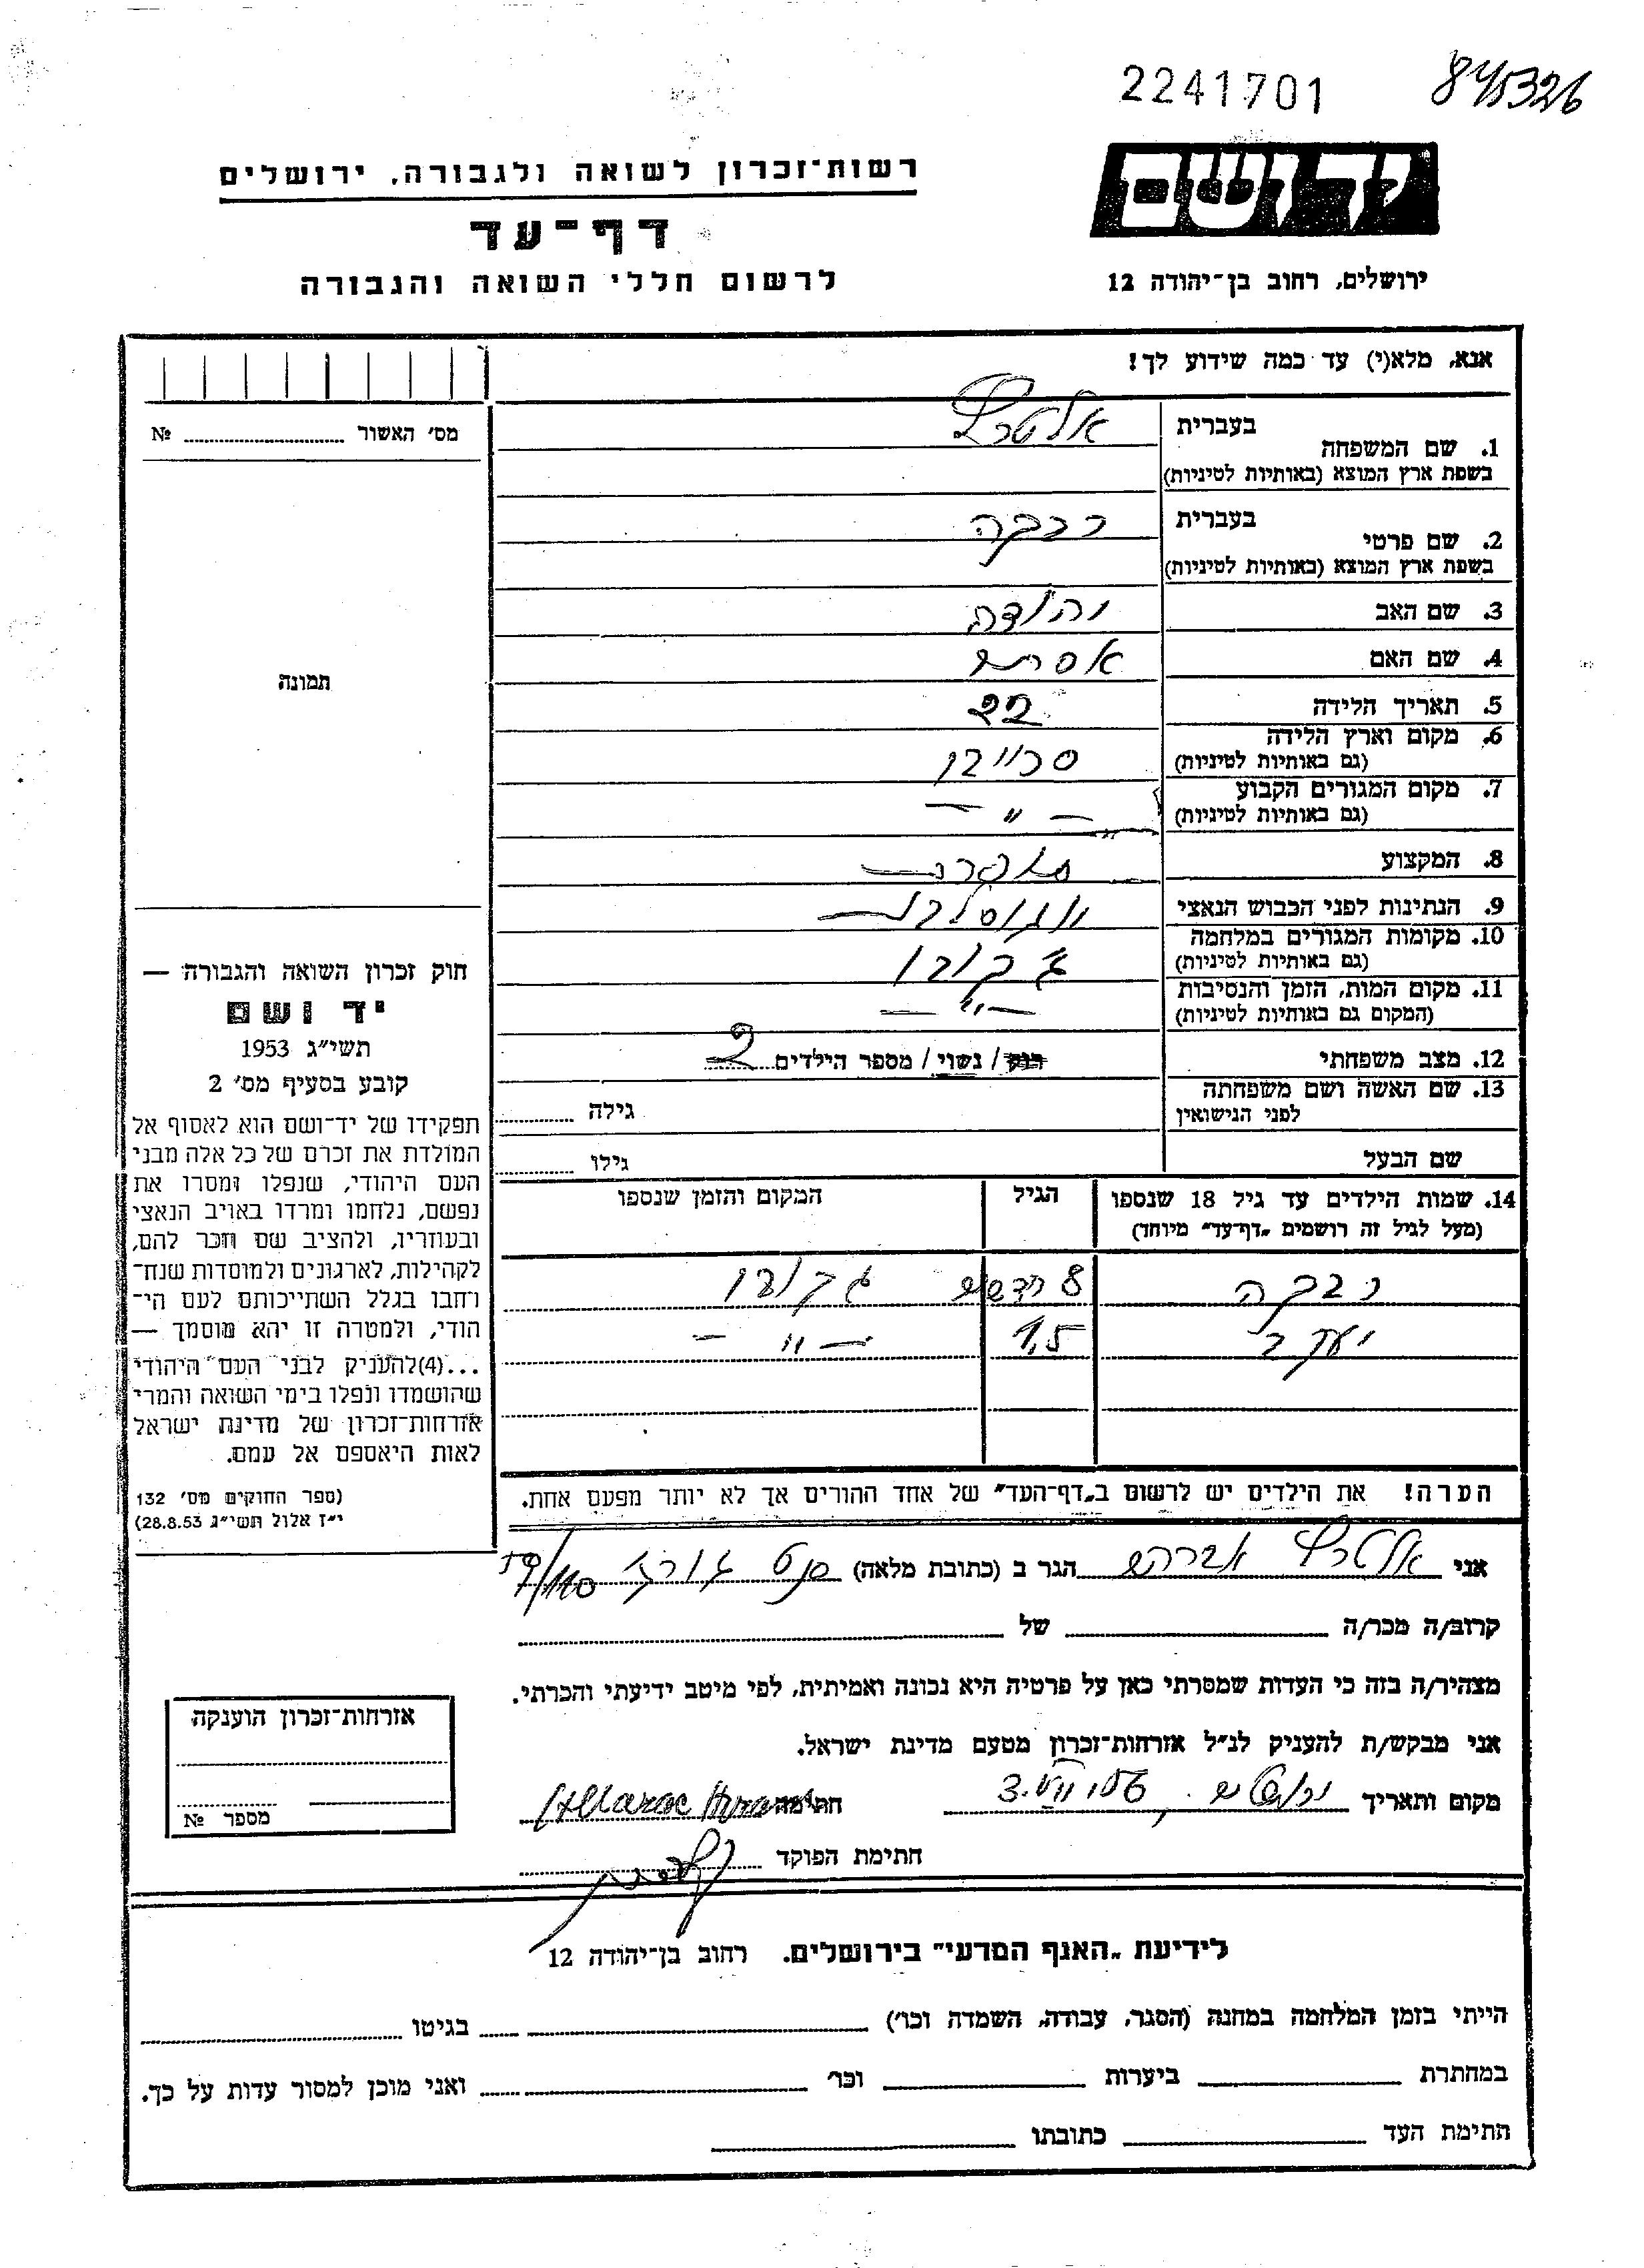 2241701
845326
יד ושם
ירושלים, רחוב בן־יהודה 12
רשות־זכרון לשואה ולגבורה, ירושלים
דף־עד
לרשום חללי השואה והגבורה
אנא, מלא(י) עד כמה שידוע לך!
1. שם המשפחה
בעברית אלטרץ
בשפת ארץ המוצא (באותיות לטיניות)
2. שם פרטי
בעברית רבקה
בשפת ארץ המוצא (באותיות לטיניות)
3. שם האב יהודה
4. שם האם אסתר
5. תאריך הלידה 22
6. מקום וארץ הלידה
(גם באותיות לטיניות)
7. מקום המגורים הקבוע — " —
(גם באותיות לטיניות)
8. המקצוע
9. הנתינות לפני הכבוש הנאצי
10. מקומות המגורים במלחמה
(גם באותיות לטיניות)
11. מקום המות, הזמן והנסיבות — " —
(המקום גם באותיות לטיניות)
12. מצב משפחתי רוק / נשוי / מספר הילדים 2
13. שם האשה ושם משפחתה
לפני הנישואין
גילה
שם הבעל
גילו
14. שמות הילדים עד גיל 18 שנספו
(מעל לגיל זה רושמים „דף־עד" מיוחד)
הגיל
המקום והזמן שנספו
רבקה 8 חדשים
יעקב 1,5 — " —
הערה! את הילדים יש לרשום ב„דף־העד" של אחד ההורים אך לא יותר מפעם אחת.
אני אלטרץ אברהם הגר ב (כתובת מלאה)
קרוב/ה מכר/ה של
מצהיר/ה בזה כי העדות שמסרתי כאן על פרטיה היא נכונה ואמיתית, לפי מיטב ידיעתי והכרתי.
אני מבקש/ת להעניק לנ"ל אזרחות־זכרון מטעם מדינת ישראל.
מקום ותאריך ירושלים חתימה
חתימת הפוקד
מס' האשור №
תמונה
חוק זכרון השואה והגבורה —
יד ושם
תשי"ג 1953
קובע בסעיף מס' 2
תפקידו של יד־ושם הוא לאסוף אל
המולדת את זכרם של כל אלה מבני
העם היהודי, שנפלו ומסרו את
נפשם, נלחמו ומרדו באויב הנאצי
ובעוזריו, ולהציב שם וזכר להם,
לקהילות, לארגונים ולמוסדות שנח־
רחבו בגלל השתייכותם לעם הי־
הודי, ולמטרה זו יהא מוסמך —
...(4)להעניק לבני העם היהודי
שהושמדו ונפלו בימי השואה והמרי
אזרחות־זכרון של מדינת ישראל
לאות היאספם אל עמם.
(ספר החוקים מס' 132
י"ז אלול תשי"ג 28.8.53)
אזרחות־זכרון הוענקה
מספר №
לידיעת „האגף המדעי" בירושלים. רחוב בן־יהודה 12
הייתי בזמן המלחמה במחנה (הסגר, עבודה, השמדה וכו') בגיטו
במחתרת ביערות וכו' ואני מוכן למסור עדות על כך.
חתימת העד כתובתו